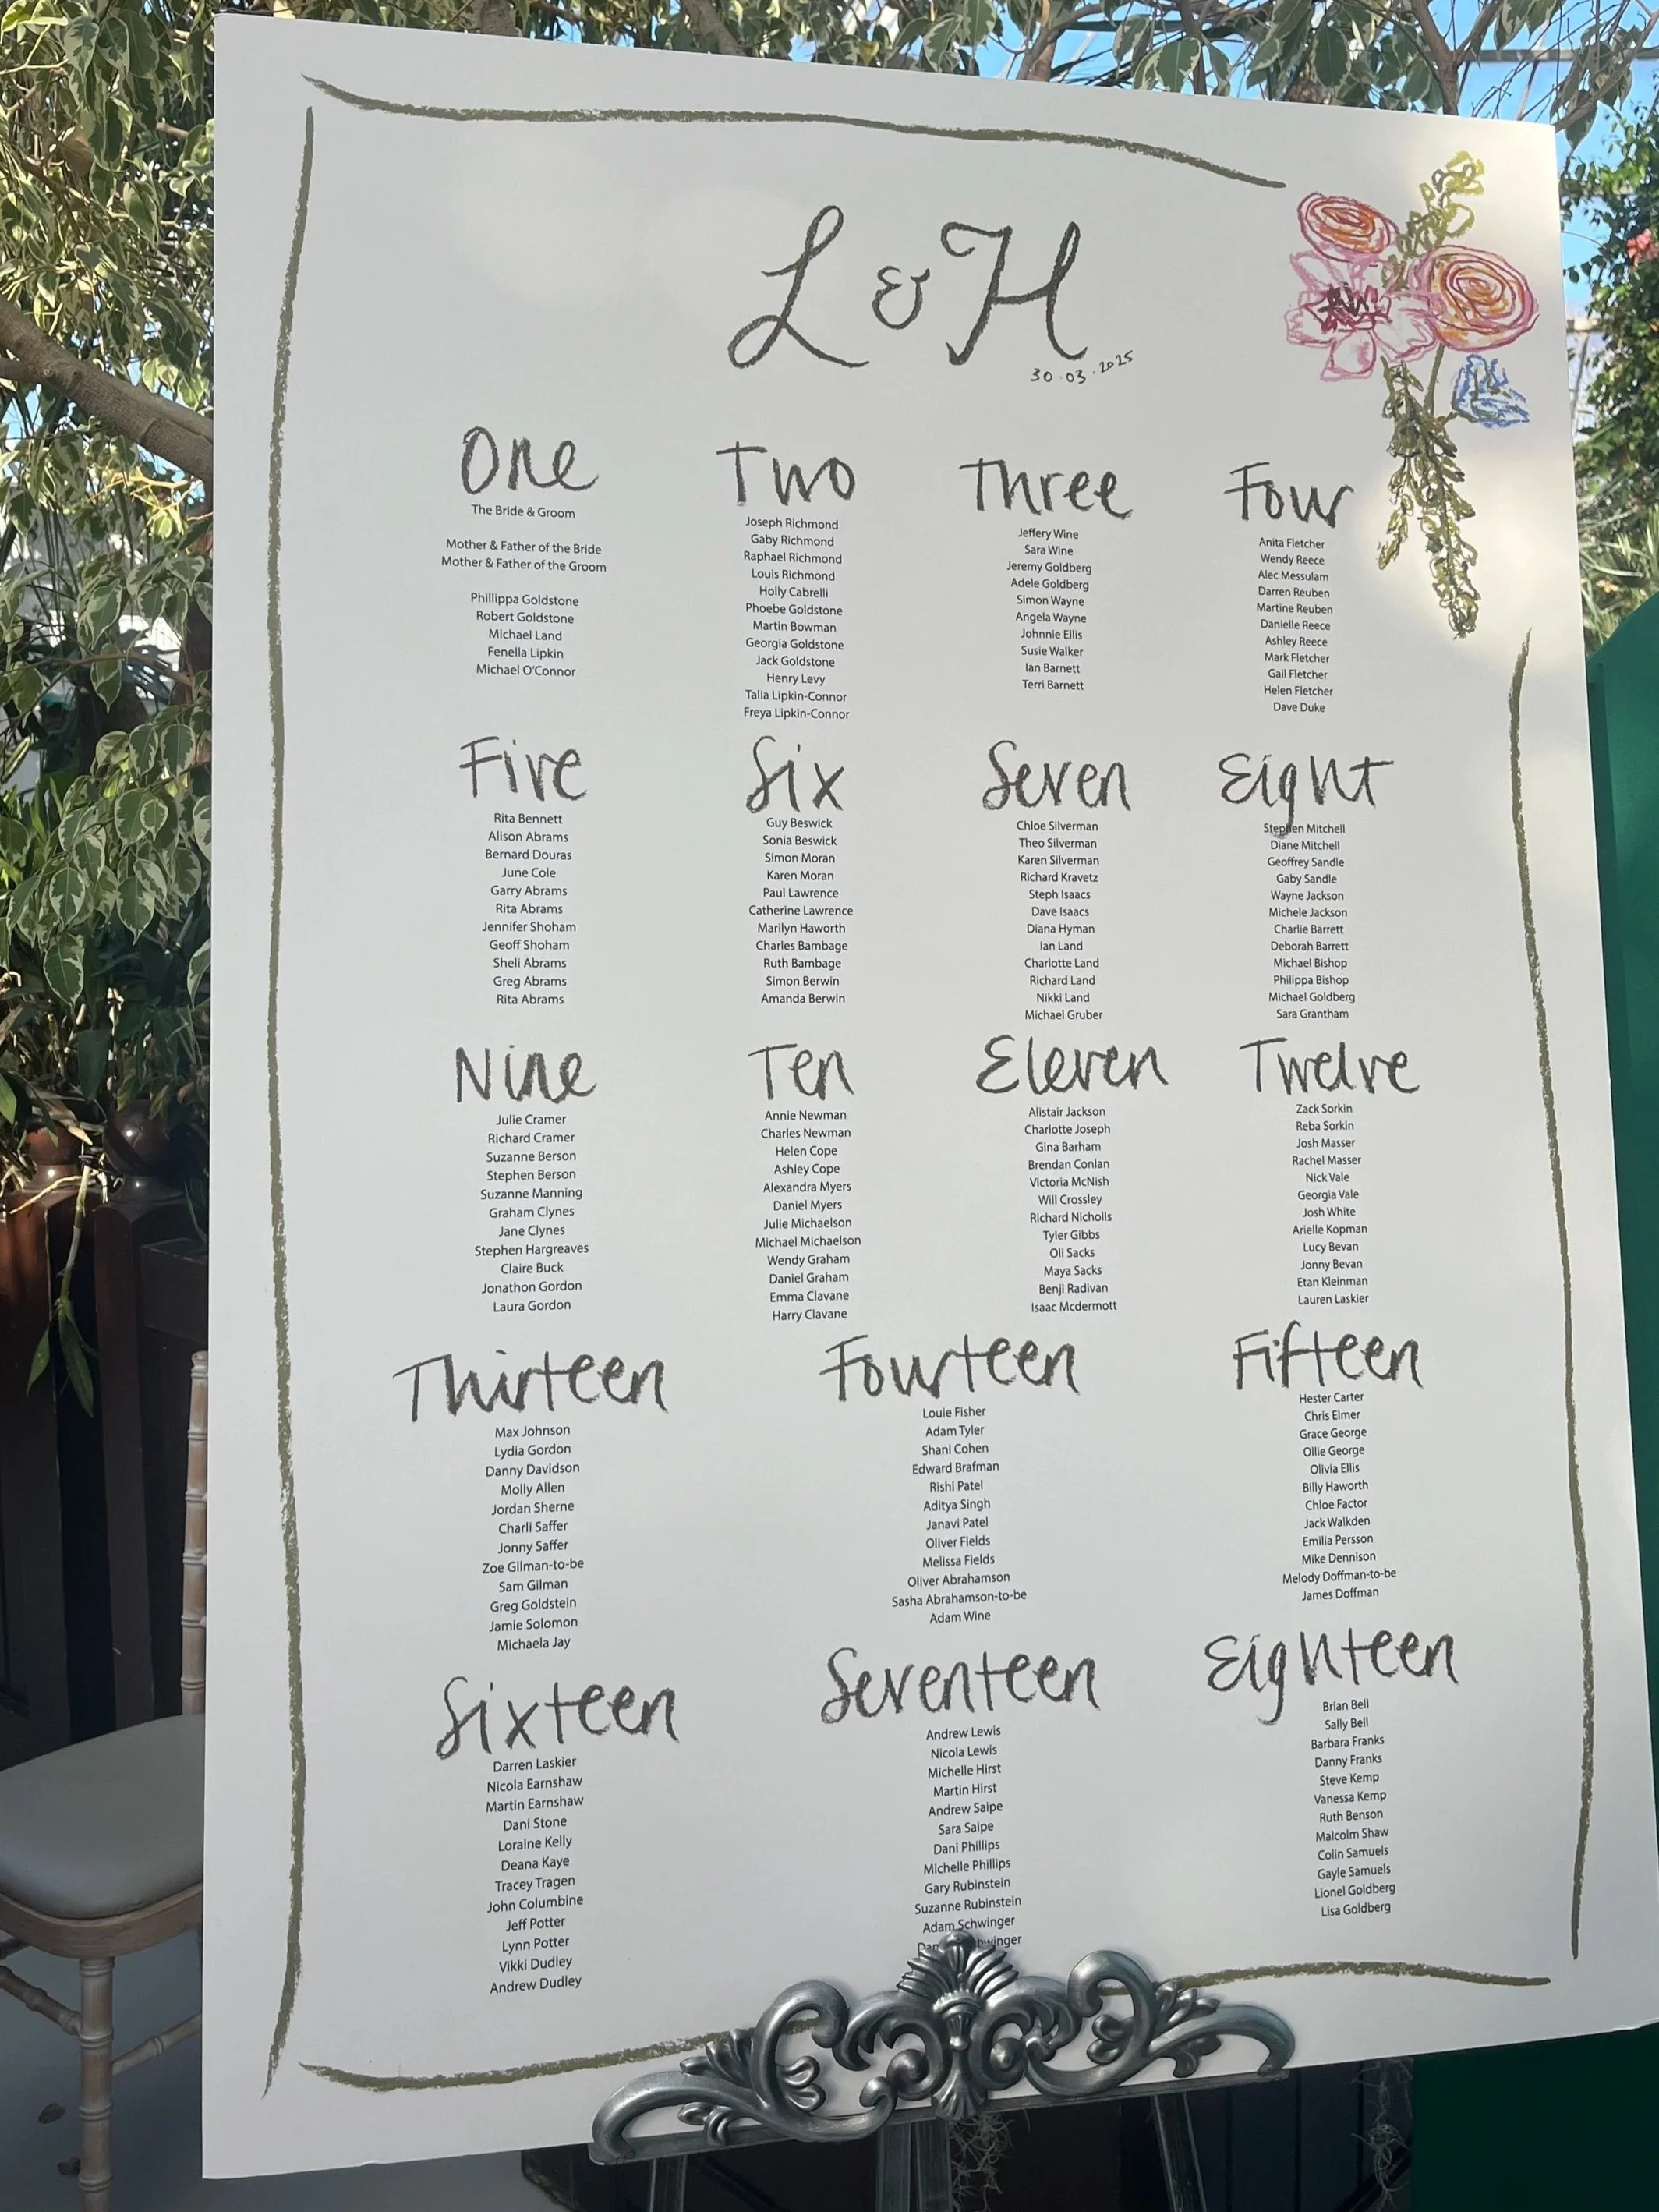 L & H
30.03.2025
One
The Bride & Groom
Mother & Father of the Bride
Mother & Father of the Groom
Phillippa Goldstone
Robert Goldstone
Michael Land
Fenella Lipkin
Michael O'Connor
Two
Joseph Richmond
Gaby Richmond
Raphael Richmond
Louis Richmond
Holly Cabrelli
Phoebe Goldstone
Martin Bowman
Georgia Goldstone
Jack Goldstone
Henry Levy
Talia Lipkin-Connor
Freya Lipkin-Connor
Three
Jeffery Wine
Sara Wine
Jeremy Goldberg
Adele Goldberg
Simon Wayne
Angela Wayne
Johnnie Ellis
Susie Walker
Ian Barnett
Terri Barnett
Four
Anita Fletcher
Wendy Reece
Alec Messulam
Darren Reuben
Martine Reuben
Danielle Reece
Ashley Reece
Mark Fletcher
Gail Fletcher
Helen Fletcher
Dave Duke
Five
Rita Bennett
Alison Abrams
Bernard Douras
June Cole
Garry Abrams
Rita Abrams
Jennifer Shoham
Geoff Shoham
Sheli Abrams
Greg Abrams
Rita Abrams
Six
Guy Beswick
Sonia Beswick
Simon Moran
Karen Moran
Paul Lawrence
Catherine Lawrence
Marilyn Haworth
Charles Bambage
Ruth Bambage
Simon Berwin
Amanda Berwin
Seven
Chloe Silverman
Theo Silverman
Karen Silverman
Richard Kravetz
Steph Isaacs
Dave Isaacs
Diana Hyman
Ian Land
Charlotte Land
Richard Land
Nikki Land
Michael Gruber
Eight
Stephen Mitchell
Diane Mitchell
Geoffrey Sandle
Gaby Sandle
Wayne Jackson
Michele Jackson
Charlie Barrett
Deborah Barrett
Michael Bishop
Philippa Bishop
Michael Goldberg
Sara Grantham
Nine
Julie Cramer
Richard Cramer
Suzanne Berson
Stephen Berson
Suzanne Manning
Graham Clynes
Jane Clynes
Stephen Hargreaves
Claire Buck
Jonathon Gordon
Laura Gordon
Ten
Annie Newman
Charles Newman
Helen Cope
Ashley Cope
Alexandra Myers
Daniel Myers
Julie Michaelson
Michael Michaelson
Wendy Graham
Daniel Graham
Emma Clavane
Harry Clavane
Eleven
Alistair Jackson
Charlotte Joseph
Gina Barham
Brendan Conlan
Victoria McNish
Will Crossley
Richard Nicholls
Tyler Gibbs
Oli Sacks
Maya Sacks
Benji Radivan
Isaac Mcdermott
Twelve
Zack Sorkin
Reba Sorkin
Josh Masser
Rachel Masser
Nick Vale
Georgia Vale
Josh White
Arielle Kopman
Lucy Bevan
Jonny Bevan
Etan Kleinman
Lauren Laskier
Thirteen
Max Johnson
Lydia Gordon
Danny Davidson
Molly Allen
Jordan Sherne
Charli Saffer
Jonny Saffer
Zoe Gilman-to-be
Sam Gilman
Greg Goldstein
Jamie Solomon
Michaela Jay
Fourteen
Louie Fisher
Adam Tyler
Shani Cohen
Edward Brafman
Rishi Patel
Aditya Singh
Janavi Patel
Oliver Fields
Melissa Fields
Oliver Abrahamson
Sasha Abrahamson-to-be
Adam Wine
Fifteen
Hester Carter
Chris Elmer
Grace George
Ollie George
Olivia Ellis
Billy Haworth
Chloe Factor
Jack Walkden
Emilia Persson
Mike Dennison
Melody Doffman-to-be
James Doffman
Sixteen
Darren Laskier
Nicola Earnshaw
Martin Earnshaw
Dani Stone
Loraine Kelly
Deana Kaye
Tracey Tragen
John Columbine
Jeff Potter
Lynn Potter
Vikki Dudley
Andrew Dudley
Seventeen
Andrew Lewis
Nicola Lewis
Michelle Hirst
Martin Hirst
Andrew Saipe
Sara Saipe
Dani Phillips
Michelle Phillips
Gary Rubinstein
Suzanne Rubinstein
Adam Schwinger
Eighteen
Brian Bell
Sally Bell
Barbara Franks
Danny Franks
Steve Kemp
Vanessa Kemp
Ruth Benson
Malcolm Shaw
Colin Samuels
Gayle Samuels
Lionel Goldberg
Lisa Goldberg